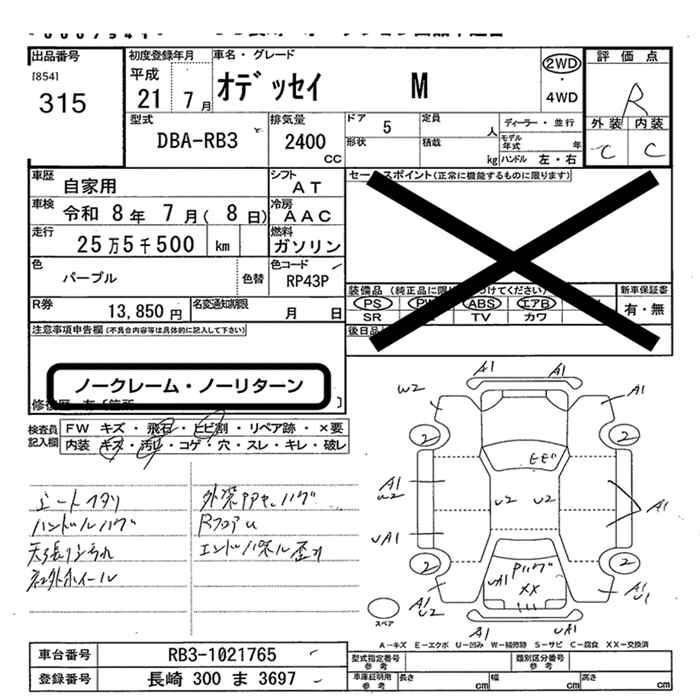 出品番号
[854]
315
初度登録年月
平成
21 7月
車名・グレード
オデッセイ M
2WD
・
4WD
評価点
R
外装 内装
C C
型式
DBA-RB3
排気量
2400
CC
ドア 5
形状
定員 人
積載 kg
ディーラー・並行
モデル年式 年
ハンドル 左・右
車歴
自家用
シフト
AT
車検
令和 8年 7月( 8日)
冷房
AAC
走行
25万5千500 km
燃料
ガソリン
色
パープル
色替
色コード
RP43P
R券
13,850円
名変通知期限
月 日
セールスポイント(正常に機能するものに限ります)
新車保証書
有・無
PS
ABS
エアB
SR TV カワ
注意事項申告欄(不具合内容等は具体的に記入して下さい)
ノークレーム・ノーリターン
検査員
記入欄
FW キズ・飛石・ヒビ割・リペア跡・×要
内装 キズ・汚レ・コゲ・穴・スレ・キレ・破レ
シートヘタリ
ハンドルハゲ
天張リ汚れ
社外ホイール
RフロアU
エンドパネル歪み
A1 A1
W2 A1
2 2
A1
U2
U2 U2
A1
UA1
Pハゲ
XX
UA1
2 2
A1
U2
A1
U1
A1 UA1
スペア
A-キズ E-エクボ U-凹み W-補修跡 S-サビ C-腐食 XX-交換済
車台番号
RB3-1021765
登録番号
長崎 300 ま 3697
型式指定番号
参考
類別区分番号
参考
車庫証明用
参考
長さ cm
幅 cm
高さ cm